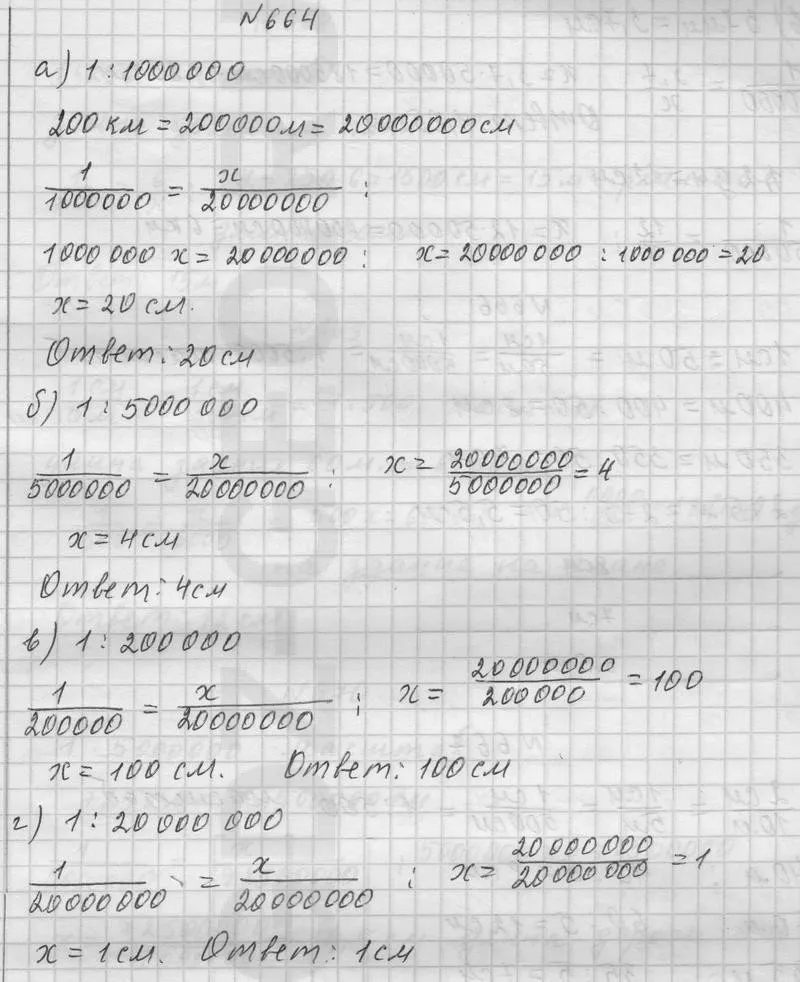 №664
а) 1 : 1000 000
200 км = 200000м = 20000000см
1/1000000 = x/20000000 ;
1000 000 x = 20000000 ; x = 20000000 : 1000 000 = 20
x = 20 см.
Ответ: 20см
б) 1 : 5000 000
1/5000000 = x/20000000 ; x = 20000000/5000000 = 4
x = 4см
Ответ: 4см
в) 1 : 200 000
1/200000 = x/20000000 ; x = 20000000/200000 = 100
x = 100 см. Ответ: 100см
г) 1 : 20 000 000
1/20000000 = x/20000000 ; x = 20000000/20000000 = 1
x = 1см. Ответ: 1см